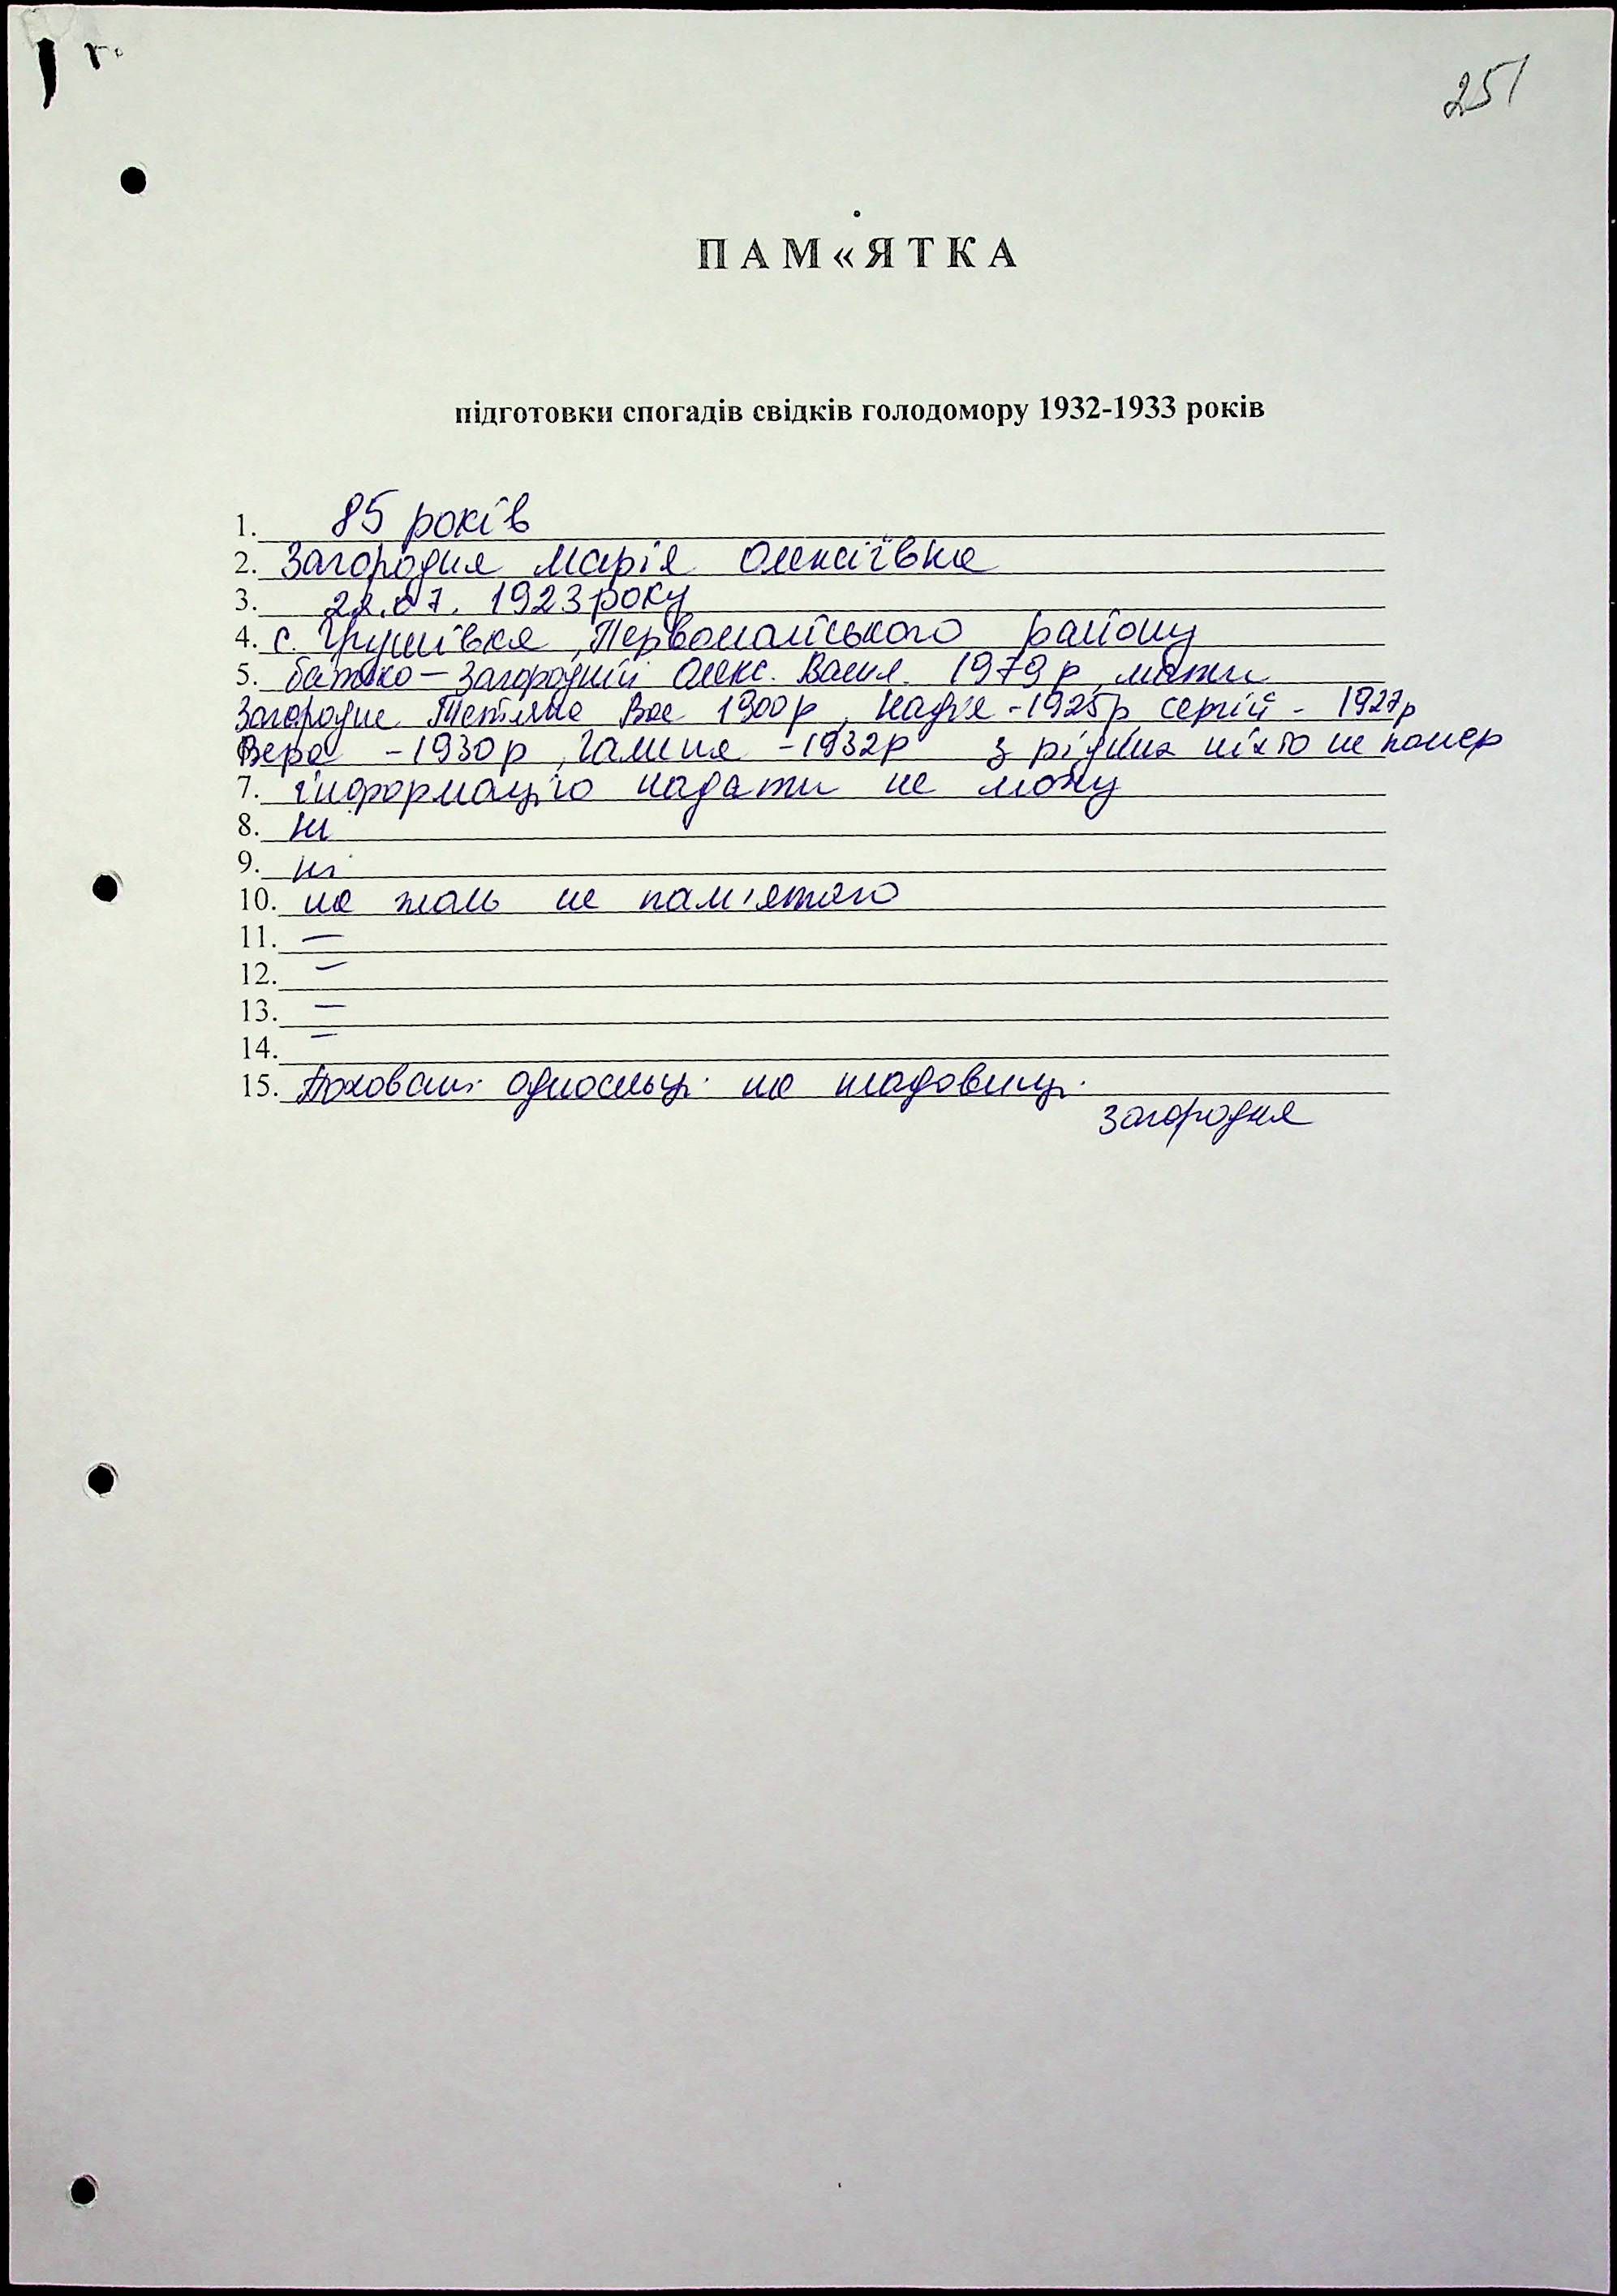 251
г.
ПАМ«ЯТКА
підготовки спогадів свідків голодомору 1932-1933 років
1. 85 років
2. Загородня Марія Олексіївна
3. 22.07. 1923 року
4. с. Грушівка, Первомайського району
5. батько – Загородній Олекс. Васил. 1979 р, мати
Загородня Тетяна Вас 1900 р, Надія - 1925 р Сергій - 1927 р
Вера - 1930 р, Галина - 1932 р з рідних ніхто не помер
7. інформацію надати не можу
8. ні
9. ні
10. на жаль не пам'ятаю
11. –
12. –
13. –
14. –
15. Поховані односельці на кладовищі.
Загородня